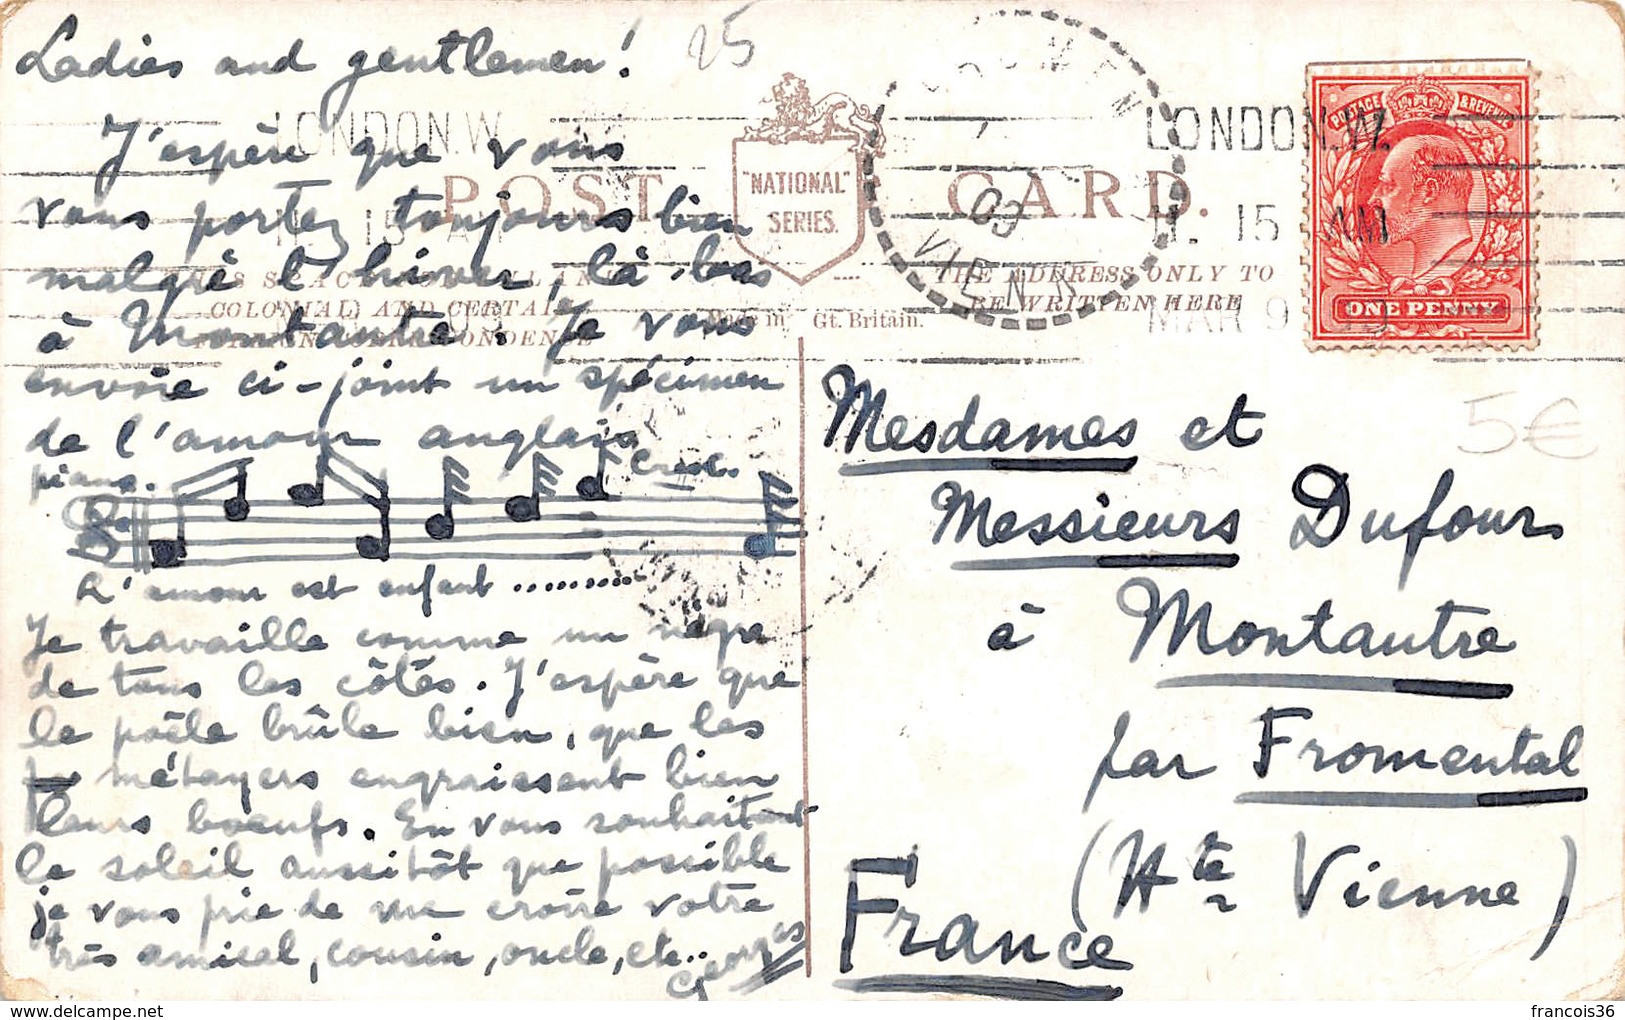 Ladies and gentlemen!
25
J'espère que vous
vous portez toujours bien
malgré l'hiver, là-bas
à Montautre. Je vous
envoie ci-joint un spécimen
de l'amour anglais
piano.
cresc.
L'amour est enfant ..........
Je travaille comme un nègre
de tous les côtés. J'espère que
le poêle brûle bien, que les
métayers engraissent bien
leurs boeufs. En vous souhaitant
le soleil aussitôt que possible
je vous prie de me croire votre
très amical, cousin, oncle, etc..
Georges
POST CARD.
"NATIONAL"
SERIES.
COLONIAL) AND CERTAIN
Made in Gt. Britain.
THE ADDRESS ONLY TO
BE WRITTEN HERE
LONDON.W.
11.15 AM
MAR 9
LONDON.W.
11.15 AM
POSTAGE & REVENUE
ONE PENNY
VIENNE
Mesdames et
Messieurs Dufour
à Montautre
par Fromental
(Hte Vienne)
France
5€
francois36
delcampe.net